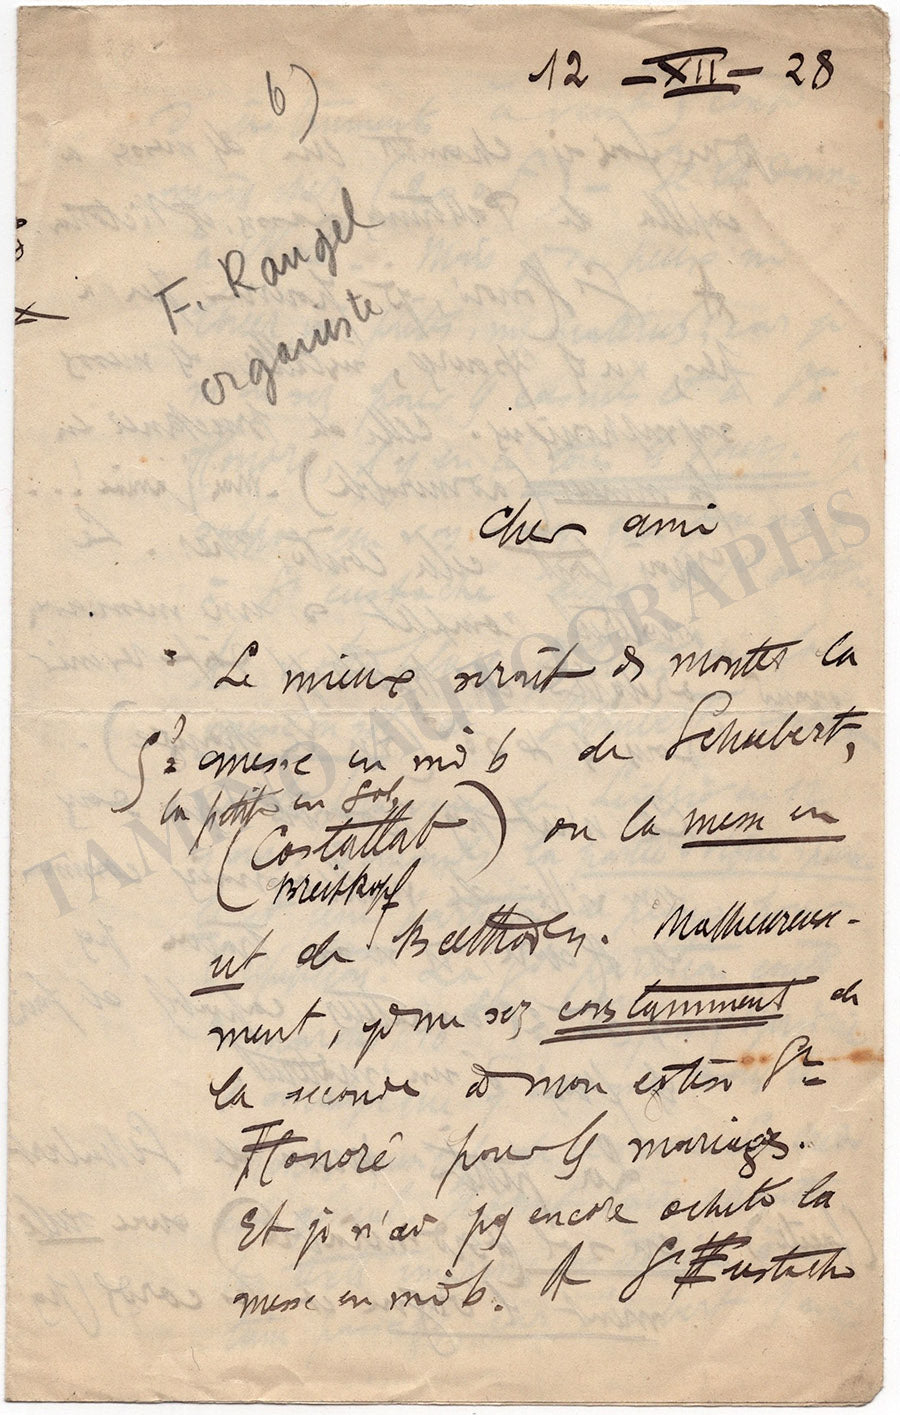 12 - XII - 28
6)
F. Raugel
organiste
Cher ami
Le mieux serait de monter la
messe en mi b de Schubert,
la petite en Sol,
(Costallat) ou la messe en
Breitkopf
ut de Beethoven. Malheureuse-
ment, je me sers constamment de
la seconde à mon St
Honoré pour les mariages.
Et je n'ai pas encore acheté la
messe en mi b. A St Eustache
TAMINO AUTOGRAPHS